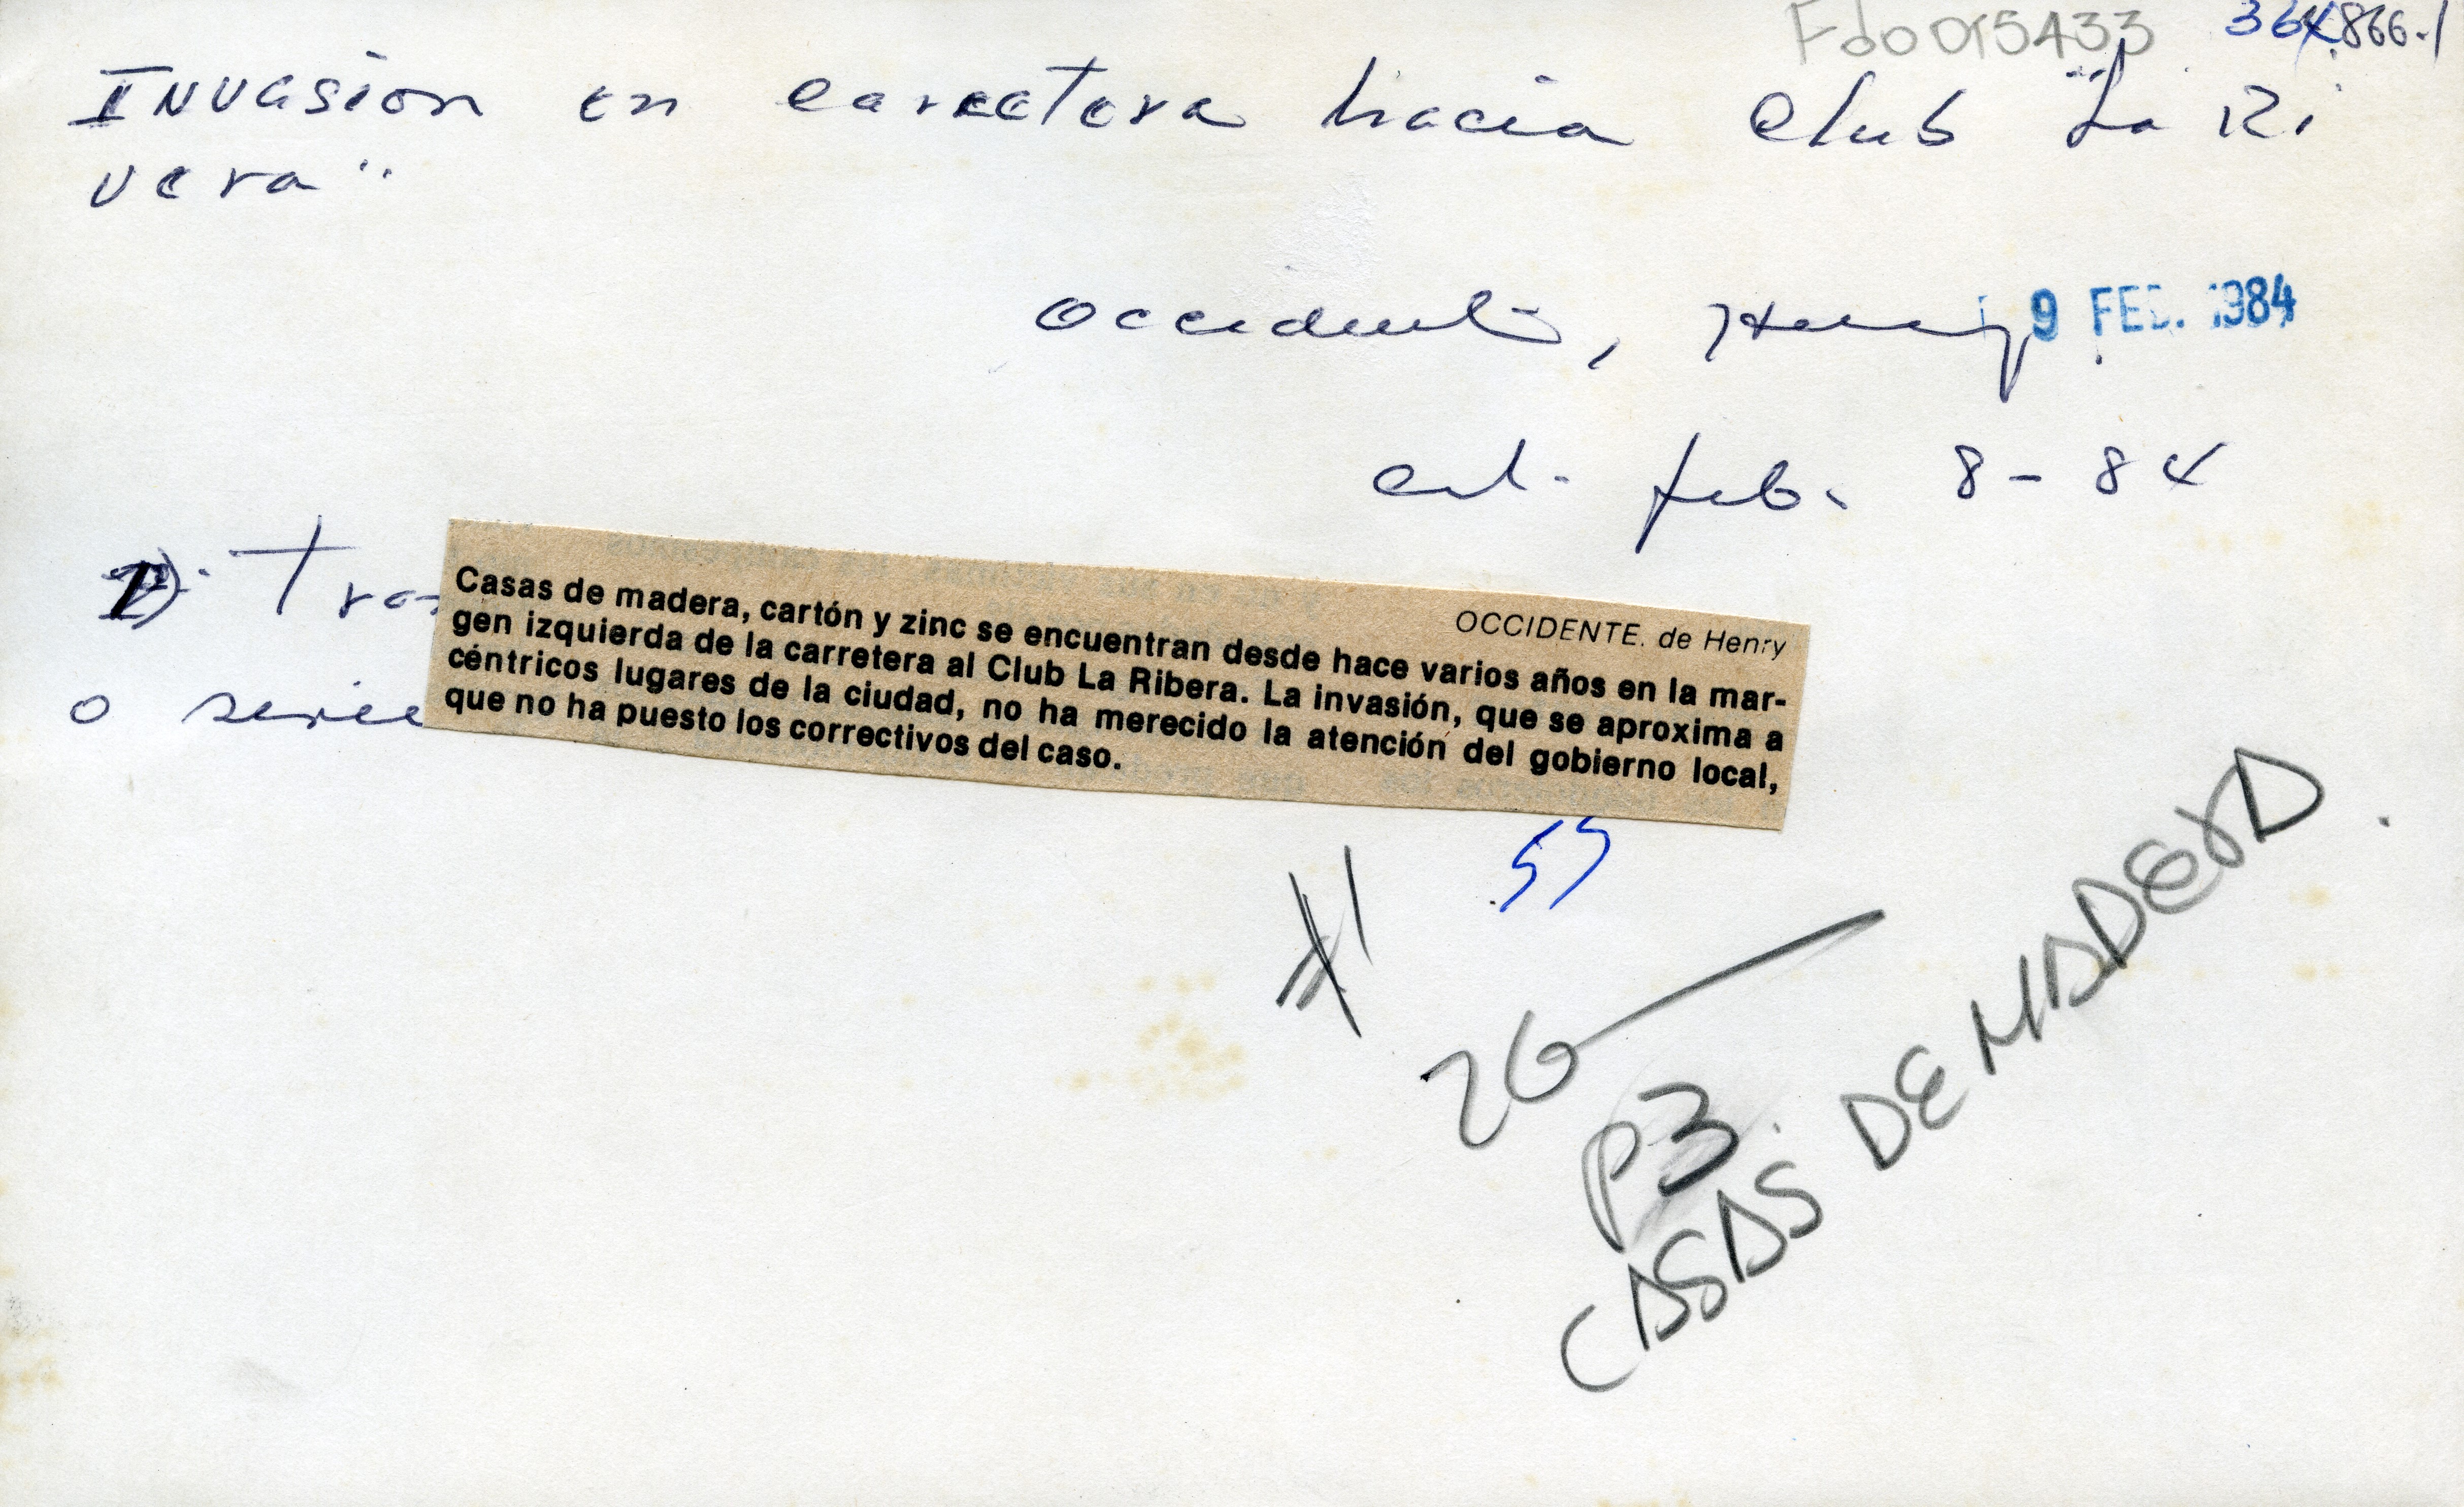 Fdo015433 364.866.1
Invasion en carretera hacia Club "La Ri
vera"
Occidente, Henry 9 FEB. 1984
cal. feb. 8-84
1). Tra
o serie
OCCIDENTE. de Henry
Casas de madera, cartón y zinc se encuentran desde hace varios años en la mar-
gen izquierda de la carretera al Club La Ribera. La invasión, que se aproxima a
céntricos lugares de la ciudad, no ha merecido la atención del gobierno local,
que no ha puesto los correctivos del caso.
55
#1
26
P3.
CASAS DE MADERA.